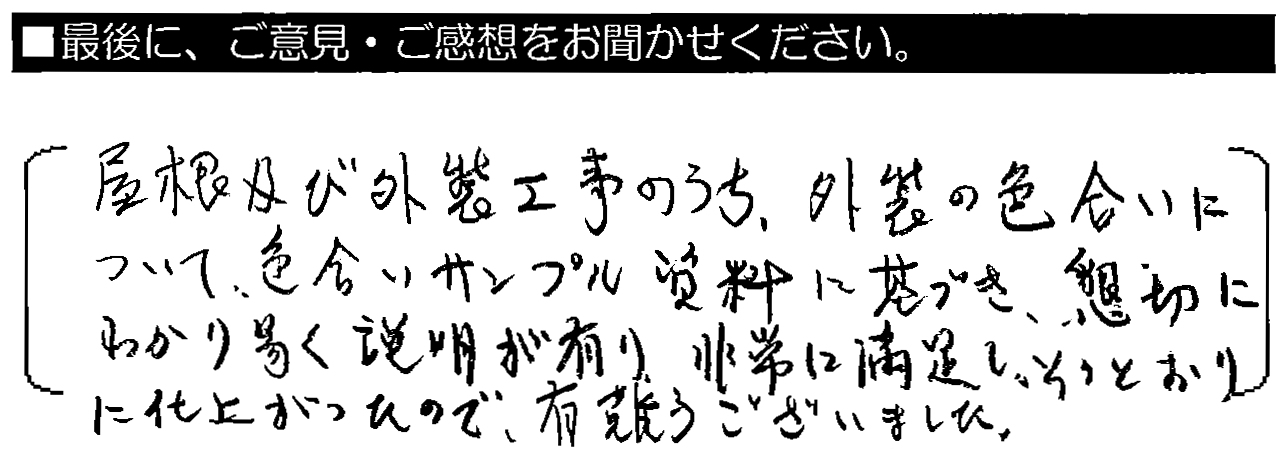 ■最後に、ご意見・ご感想をお聞かせください。
屋根及び外装工事のうち、外装の色合いに
ついて、色合いサンプル資料に基づき、懇切に
わかり易く説明が有り、非常に満足し、そのとおり
に仕上がったので、有難うございました。